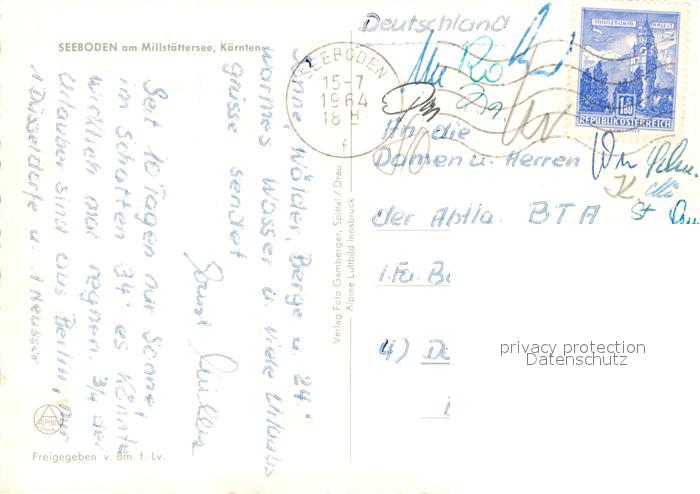 SEEBODEN am Millstättersee, Kärnten
Sonne, Wälder, Berge u. 24°
warmes Wasser u. viele Urlaubs
grüsse sendet
Seit 10 Tagen nur Sonne,
im Schatten 34° es könnte
wirklich mal regnen. 3/4 der
Urlauber sind aus Berlin, nur
1 Düsseldorfer u. 1 Neusser
ALPINE
Freigegeben v. Bm. f. Lv.
Verlag Foto Gamberger, Spittal / Drau
Alpine Luftbild Innsbruck
SEEBODEN
15-7
1964
18 H
f
MÜNZTURM HALL I. T.
S 1.80
REPUBLIK ÖSTERREICH
Deutschland
An die
Damen u. Herren
der Abtlg. BTA
i. Fa.
4)
privacy protection
Datenschutz